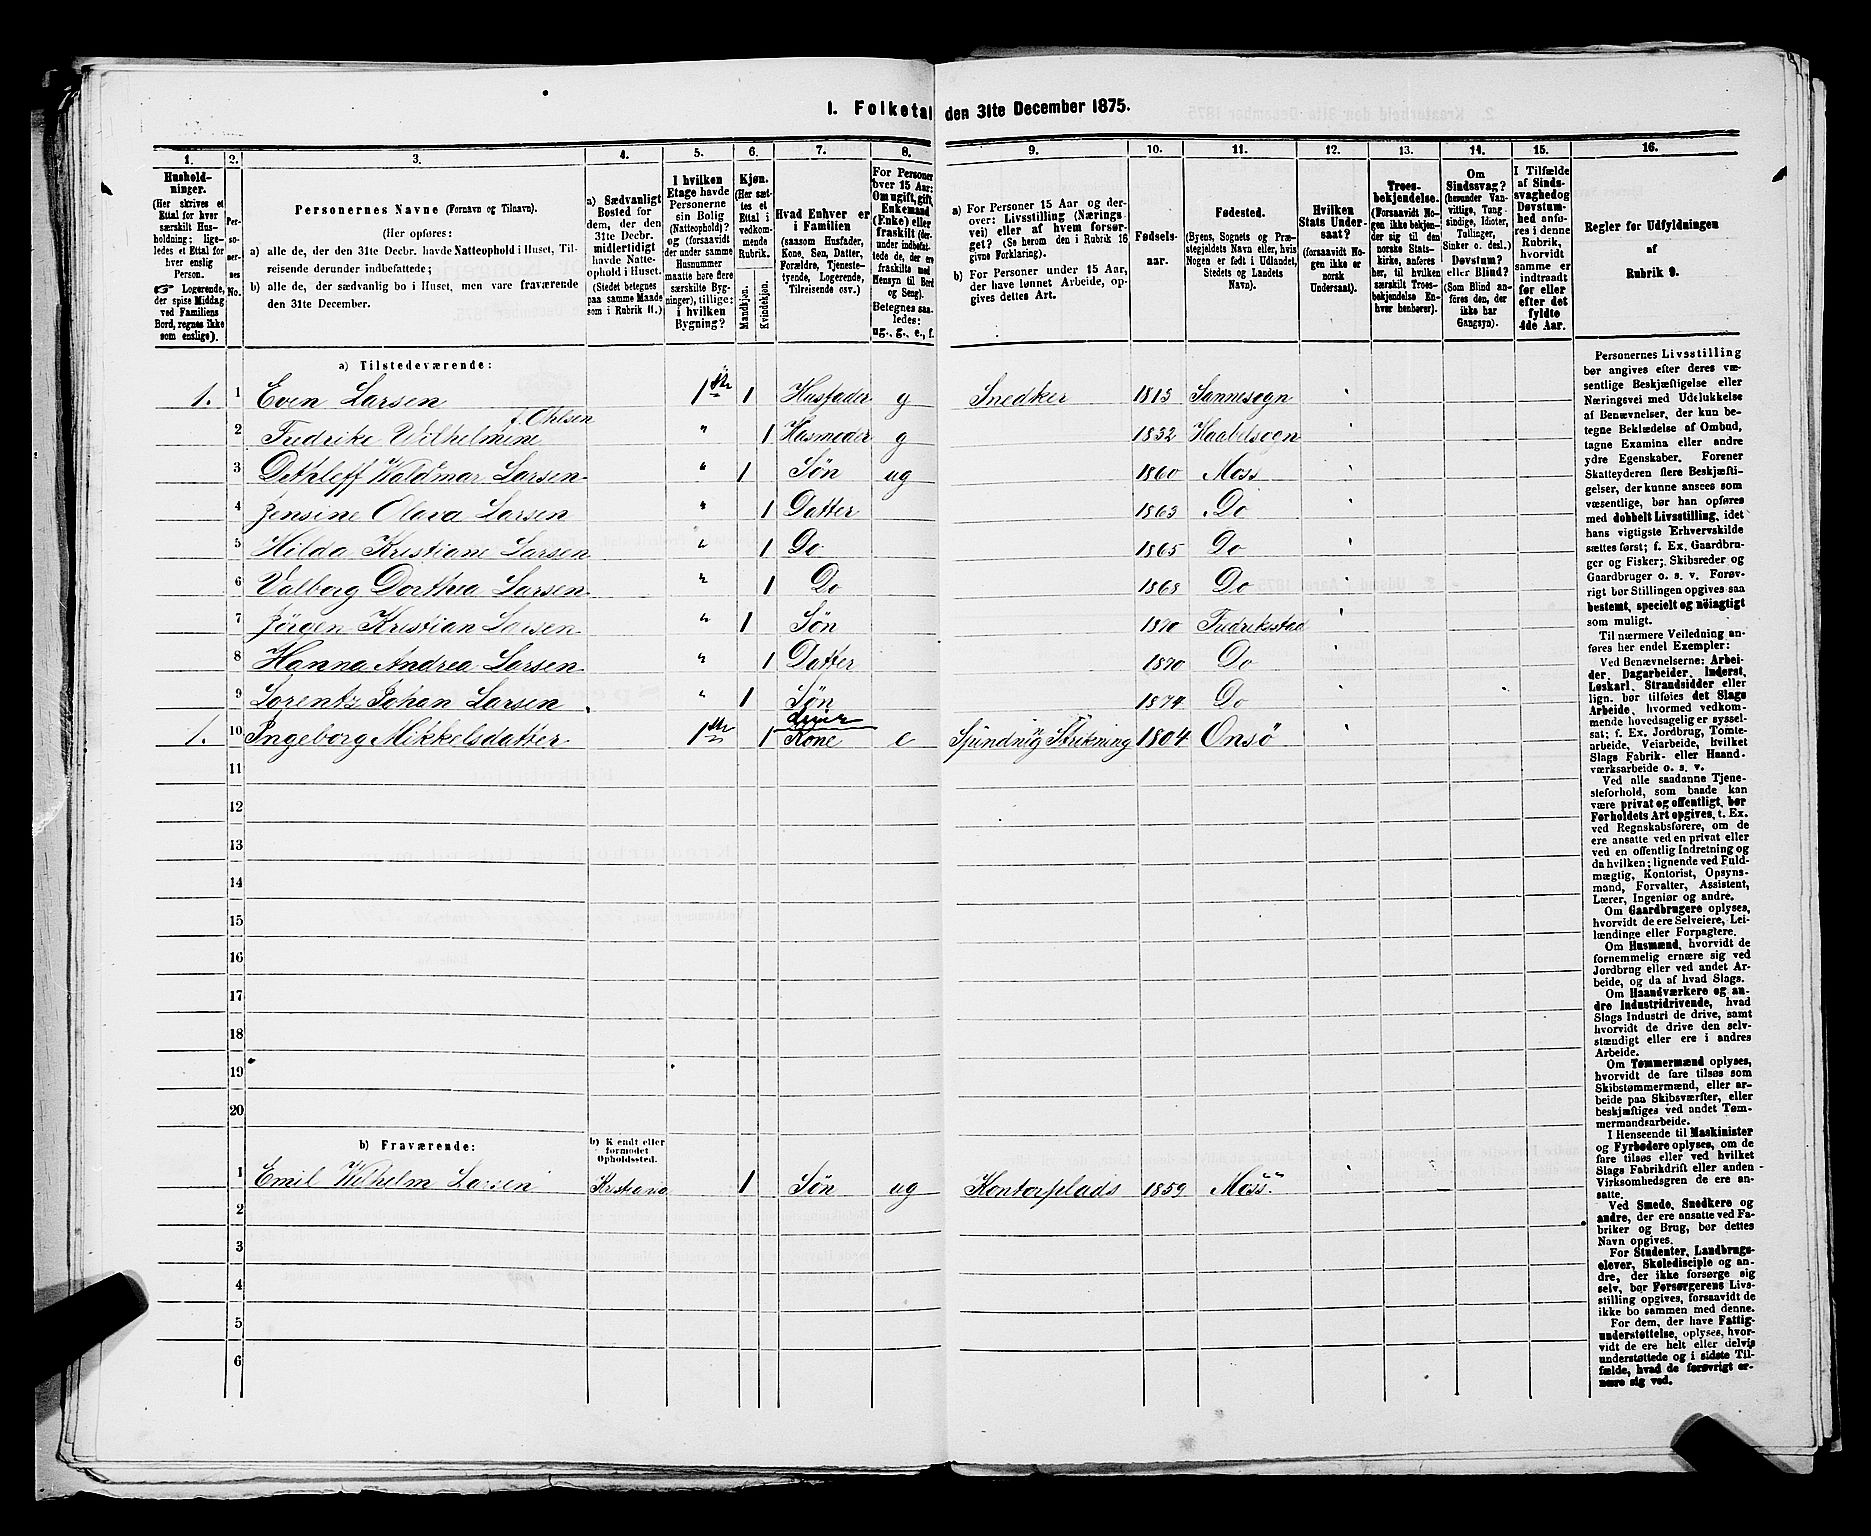 1. Folketal den 31te December 1875.
1. 2. 3. 4. 5. 6. 7. 8. 9. 10. 11. 12. 13. 14. 15. 16.
Husholdninger.
(Her skrives et
Ettal for hver
særskilt Husholdning;
ligeledes et Ettal for
hver enslig
Person.
☞ Logerende,
der spise Middag
ved Familiens
Bord, regnes ikke
som enslige).
Personernes No.
Personernes Navne (Fornavn og Tilnavn).
(Her opføres:
a) alle de, der den 31te Decbr. havde Natteophold i Huset, Tilreisende
derunder indbefattede;
b) alle de, der sædvanlig bo i Huset, men vare fraværende
den 31te December.
a) Sædvanligt
Bosted for
dem, der den
31te Decbr.
midlertidigt
havde Natteophold
i Huset.
(Stedet betegnes
paa samme Maade
som i Rubrik 11.)
I hvilken
Etage havde
Personerne
sin Bolig
(Natteophold)?
og (forsaavidt
der under samme
Husnummer
maatte høre flere
særskilte Bygninger),
tillige:
i hvilken
Bygning?
Kjøn.
(Her sættes
et
Ettal i
vedkommende
Rubrik.
Mandkjøn.
Kvindekjøn.
Hvad Enhver er
i Familien
(saasom Husfader,
Kone, Søn, Datter,
Forældre, Tjenestetyende,
Logerende,
Tilreisende osv.)
For Personer
over 15 Aar:
Om ugift, gift,
Enkemand
(Enke) eller
fraskilt (derunder
indbefattede
de, der ere
fraskilte med
Hensyn til Bord
og Seng).
Betegnes saaledes:
ug., g., e., f.
a) For Personer 15 Aar og derover:
Livsstilling (Næringsvei)
eller af hvem forsørget?
(Se herom den i Rubrik 16
givne Forklaring).
b) For Personer under 15 Aar,
der have lønnet Arbeide, opgives
dettes Art.
Fødselsaar.
Fødested.
(Byens, Sognets og Præstegjeldets
Navn eller, hvis
Nogen er født i Udlandet,
Stedets og Landets
Navn).
Hvilken
Stats Undersaat?
(forsaavidt Nogen
ikke er
norsk
Undersaat).
Troesbekjendelse.
(Forsaavidt Nogen
ikke bekjender
sig til den
norske Statskirke,
anføres
her, til hvilken
særskilt Troesbekjendelse
Enhver
henhører).
Om
Sindssvag?
(herunder Vanvittige,
Tungsindige,
Idioter,
Tullinger,
Sinker o. desl.)
Døvstum?
eller Blind?
(Som Blind anføres
den, der
ikke har
Gangsyn).
I Tilfælde
af Sindssvaghed
og
Døvstumhed
anføres
i denne
Rubrik,
hvorvidt
samme er
indtraadt
før eller
efter det
fyldte
4de Aar.
Regler for Udfyldningen
af
Rubrik 9.
a) Tilstedeværende:
1. 1 Even Larsen 1ste 1 Husfader g Snedker 1813 Sannesogn
f. Ohlsen
2 Fredrike Wilhelmine " 1 Husmoder g 1832 Haabølsogn
3 Dethleff Waldmar Larsen " 1 Søn ug 1860 Moss
4 Jensine Olava Larsen " 1 Datter 1863 Do
5 Hilda Kristiane Larsen " 1 Do 1865 Do
6 Valborg Dorthea Larsen " 1 Do 1868 Do
7 Jörgen Kristian Larsen " 1 Søn 1870 Fredriksstad
8 Hanna Andrea Larsen " 1 Datter 1870 Do
9 Lorentz Johan Larsen " 1 Søn 1874 Do
1. 10 Ingeborg Mikkelsdatter 1ste 1 Kone e Spinding Strikning 1804 Onsö
11
12
13
14
15
16
17
18
19
20
b) Fraværende:
b) Kendt eller
formodet
Opholdssted.
1 Emil Wilhelm Larsen Kristiana 1 Søn ug Kontorplads 1859 Moss
2
3
4
5
6
Personernes Livsstilling
bør angives efter deres væsentlige
Beskjæftigelse eller
Næringsvei med Udelukkelse
af Benævnelser, der kun betegne
Beklædelse af Ombud,
tagne Examina eller andre
ydre Egenskaber. Forener
Skatteyderen flere Beskjæftigelser,
der kunne ansees som
væsentlige, bør han opføres
med dobbelt Livsstilling, idet
hans vigtigste Erhvervskilde
sættes først; f. Ex. Gaardbruger
og Fisker; Skibsreder og
Gaardbruger o. s. v. Forøvrigt
bør Stillingen opgives saa
bestemt, specielt og nøiagtigt
som muligt.
Til nærmere Veiledning anføres
her endel Exempler:
Ved Benævnelserne: Arbeider,
Dagarbeider, Inderst,
Løskarl, Strandsidder eller
lign. bør tilføies det Slags
Arbeide, hvormed vedkommende
hovedsagelig er sysselsat;
f. Ex. Jordbrug, Tomtearbeide,
Veiarbeide, hvilket
Slags Fabrik- eller Haandværksarbeide
o. s. v.
Ved alle saadanne Tjenesteforhold,
som baade kan
være privat og offentligt, bør
Forholdets Art opgives, t. Ex.
ved Regnskabsførere, om de
ere ansatte ved en privat eller
ved en offentlig Indretning og
da hvilken; lignende ved Fuldmægtig,
Kontorist, Opsynsmand,
Forvalter, Assistent,
Lærer, Ingeniør og andre.
Om Gaardbrugere oplyses,
hvorvidt de ere Selveiere, Leilændinge
eller Forpagtere.
Om Husmænd, hvorvidt de
fornemmelig ernære sig ved
Jordbrug eller ved andet Arbeide,
og da af hvad Slags.
Om Haandværkere og andre
Industridrivende, hvad
Slags Industri de drive, samt
hvorvidt de drive den selvstændigt
eller ere i andres
Arbeide.
Om Tømmermænd oplyses,
hvorvidt de fare tilsøs som
Skibstømmermænd, eller arbeide
paa Skibsværfter, eller
beskjæftiges ved andet Tømmermandsarbeide.
I Henseende til Maskinister
og Fyrbødere oplyses, om de
fare tilsøs eller ved hvilket
Slags Fabrikdrift eller anden
Virksomhedsgren de ere ansatte.
Ved Smede, Snedkere og
andre, der ere ansatte ved Fabriker
og Brug, bør dettes
Navn opgives.
For Studenter, Landbrugselever,
Skoledisciple og andre,
der ikke forsørge sig
selv, bør Forsørgerens Livsstilling
opgives, forsaavidt de
ikke bo sammen med denne.
For dem, der have Fattigunderstøttelse,
oplyses, hvorvidt
de ere helt eller delvis
understøttede og i sidste Tilfælde,
hvad de forøvrigt ernære
sig ved.